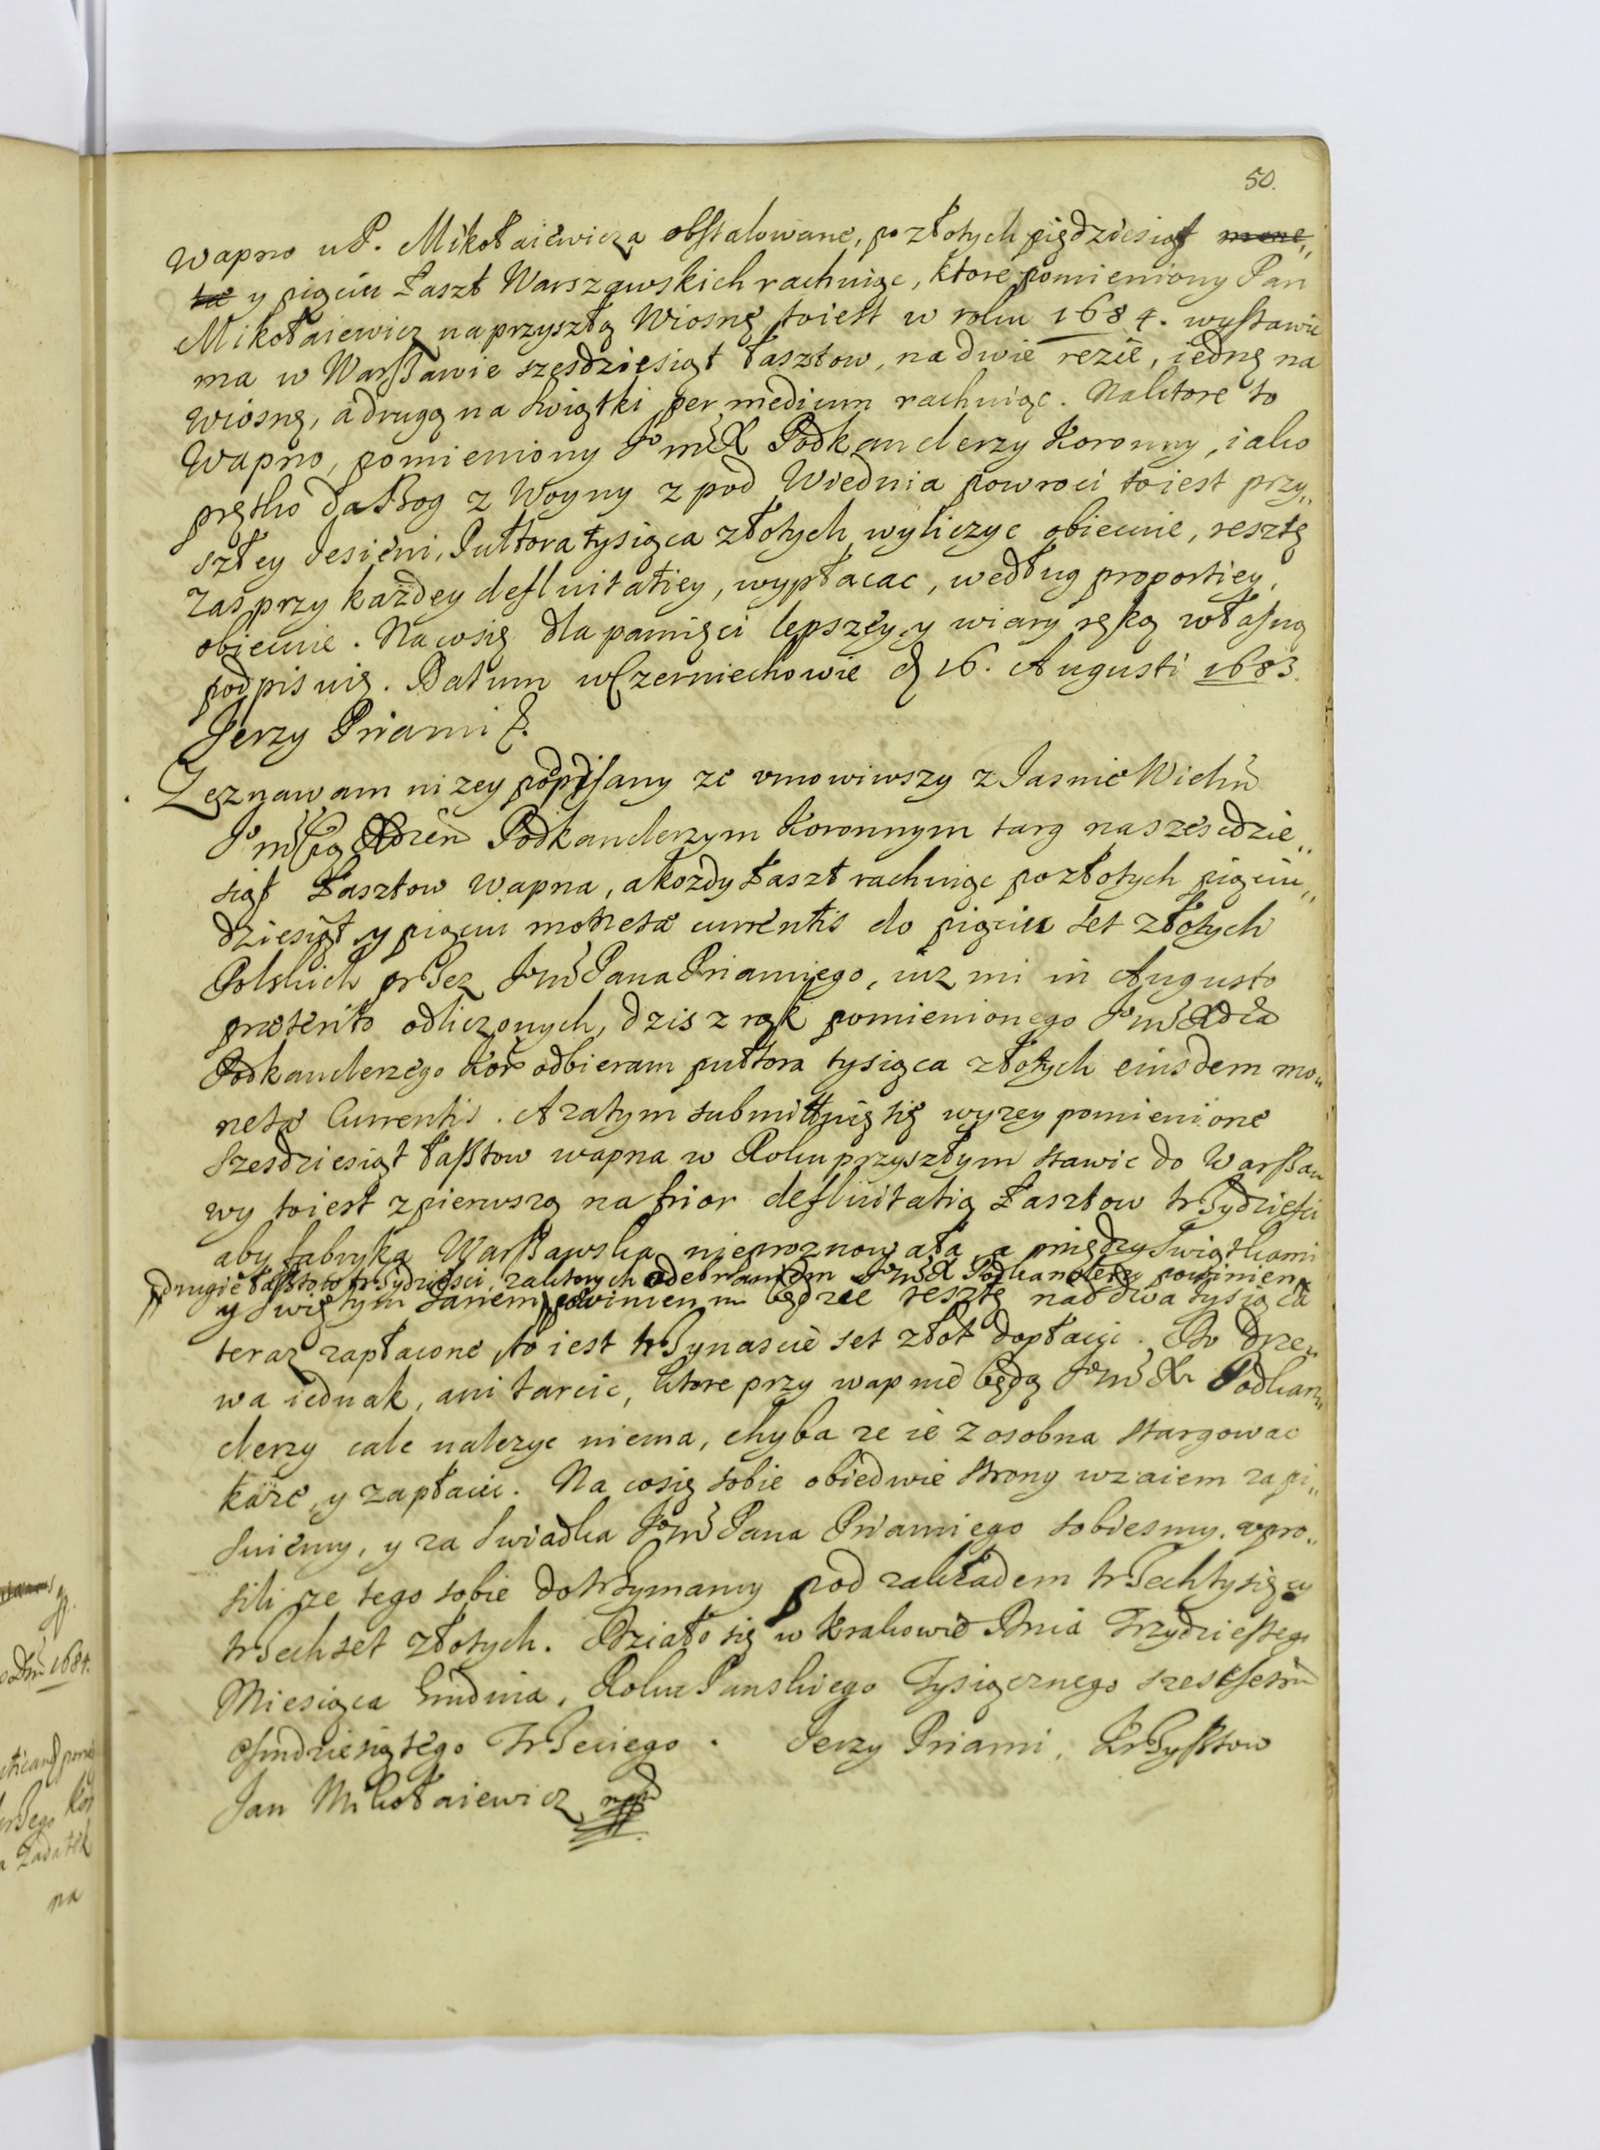 50.
wapno u P. Mikołaiewicza obstalowane, po złotych pięcdziesiąt mone„
tæ y pięciu Łaszt Warszawskich rachuiąc, ktore pomieniony Pan
Mikołaiewicz na przyszłą Wiosnę toiest w roku 1684. wystawic
ma w Warßawie szesdziesiąt łasztow, na dwie rezie, iednę na
wiosnę, a drugą na Swiątki per medium rachuiąc. Naktore to
Wapno, pomieniony Jo mć X Podkanclerzy Koronny, iako
prętko da Bog z Woyny z pod Wiednia powroci toiest przy„
szłey Iesieni, Pułtora tysiąca złotych wyliczyc obiecuie, resztę
zas przy kazdey defluitatiey, wypłacac, według proportiey,
obiecuie. Nacosię dla pamięci lepszey, y wiary ręką własną
podpisuię. Datum w Czerniechowie d 16. Augusti 1683.
Jerzy Priami
Zeznawam nizey podpisany ze vmowiwszy z Iasnie Wielm
Jo mścią Xdzem Podkanclerzym Koronnym targ na szescdzie„
siąt Łasztow wapna, a kozdy Łaszt rachuiąc po złotych pięciu„
dziesiąt y pięciu moneta currentis do pięciu set złotych
Polskich przez Jo mś Pana Priamiego, iuz mi in Augusto
præterito odliczonych, dzis z rąk pomienionego Jo mś Xdza
Podkanclerzego Kor odbieram pułtora tysiąca złotych eiusdem mo„
netæ Currentis. A zatym submittuię się wyzey pomienione
Szesdziesiąt łaßtow wapna w Roku przyszłym stawic do Warßa„
wy toiest z pierwszą na frior defluitatią Łasztow trzydziesci
aby fabryka Warßawska nieproznowała, a między Swiątkami
drugie łaßtow trzydziesci, zaktorych odebraniem Jo mś X Podkanclerzy powinien
y Swiętym Janem powinienm będzie resztę nad dwa tysiąca
teraz zapłacone, to iest trzynascie set złot dopłacic. Do drze„
wa iednak, ani tarcic, ktore przy wapnie będą Jo mś X Podkan„
clerzy cale nalezyc niema, chyba ze ie z osobna stargowac
kaze, y zapłacic. Na cosię sobie obiedwie strony wzaiem zapi„
suiemy, y za swiadka Jo mś Pana Priamiego sobiesmy vpro„
sili ze tego sobie dotrzymamy pod zakładem trzech tysięcy
trzech set złotych. Działo się w Krakowie Dnia Trzydziestego
Miesiąca Grudnia, Roku Panskiego Tysiącznego szescsetnē
osmdziesiątego Trzeciego. Jerzy Priami, Krzysztow
Jan Mikołaiewicz mpp
1684.
Zadatek
na